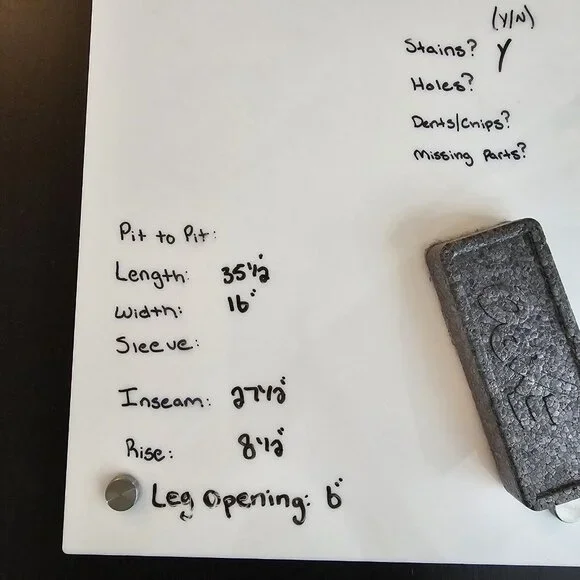 (Y/N)
Stains? Y
Holes?
Dents/Chips?
Missing Parts?
Pit to Pit:
Length: 35 1/2"
Width: 16"
Sleeve:
Inseam: 27 1/2"
Rise: 8 1/2"
Leg Opening: 6"